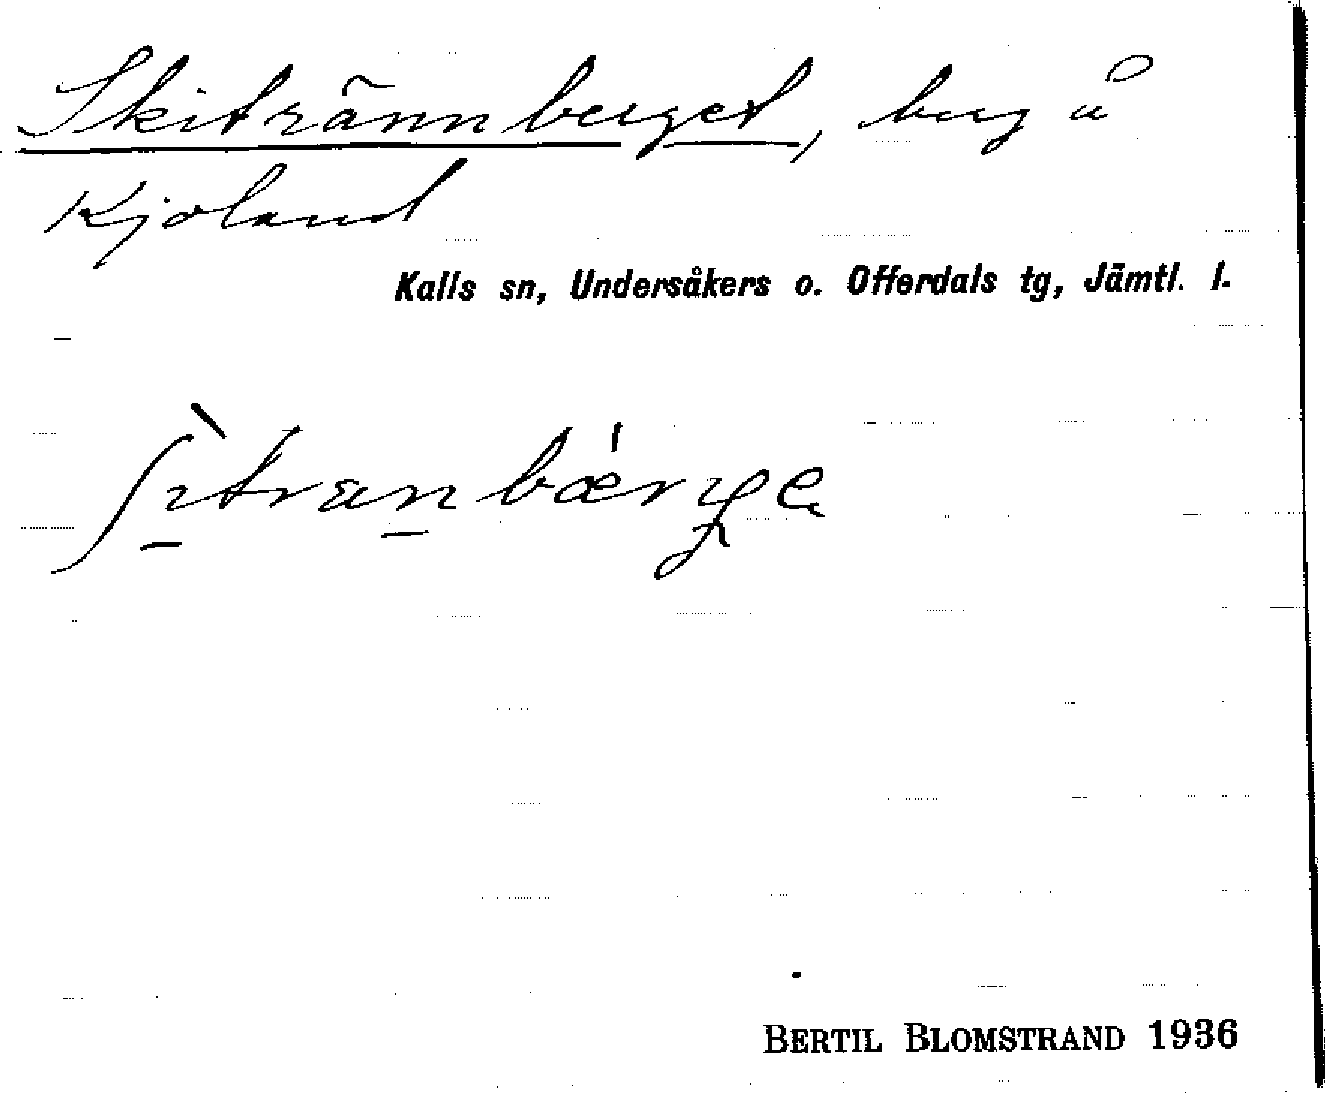 Skitrännberget, berg å
Kjoland
Kalls sn, Undersåkers o. Offerdals tg, Jämtl. l.
BERTIL BLOMSTRAND 1936